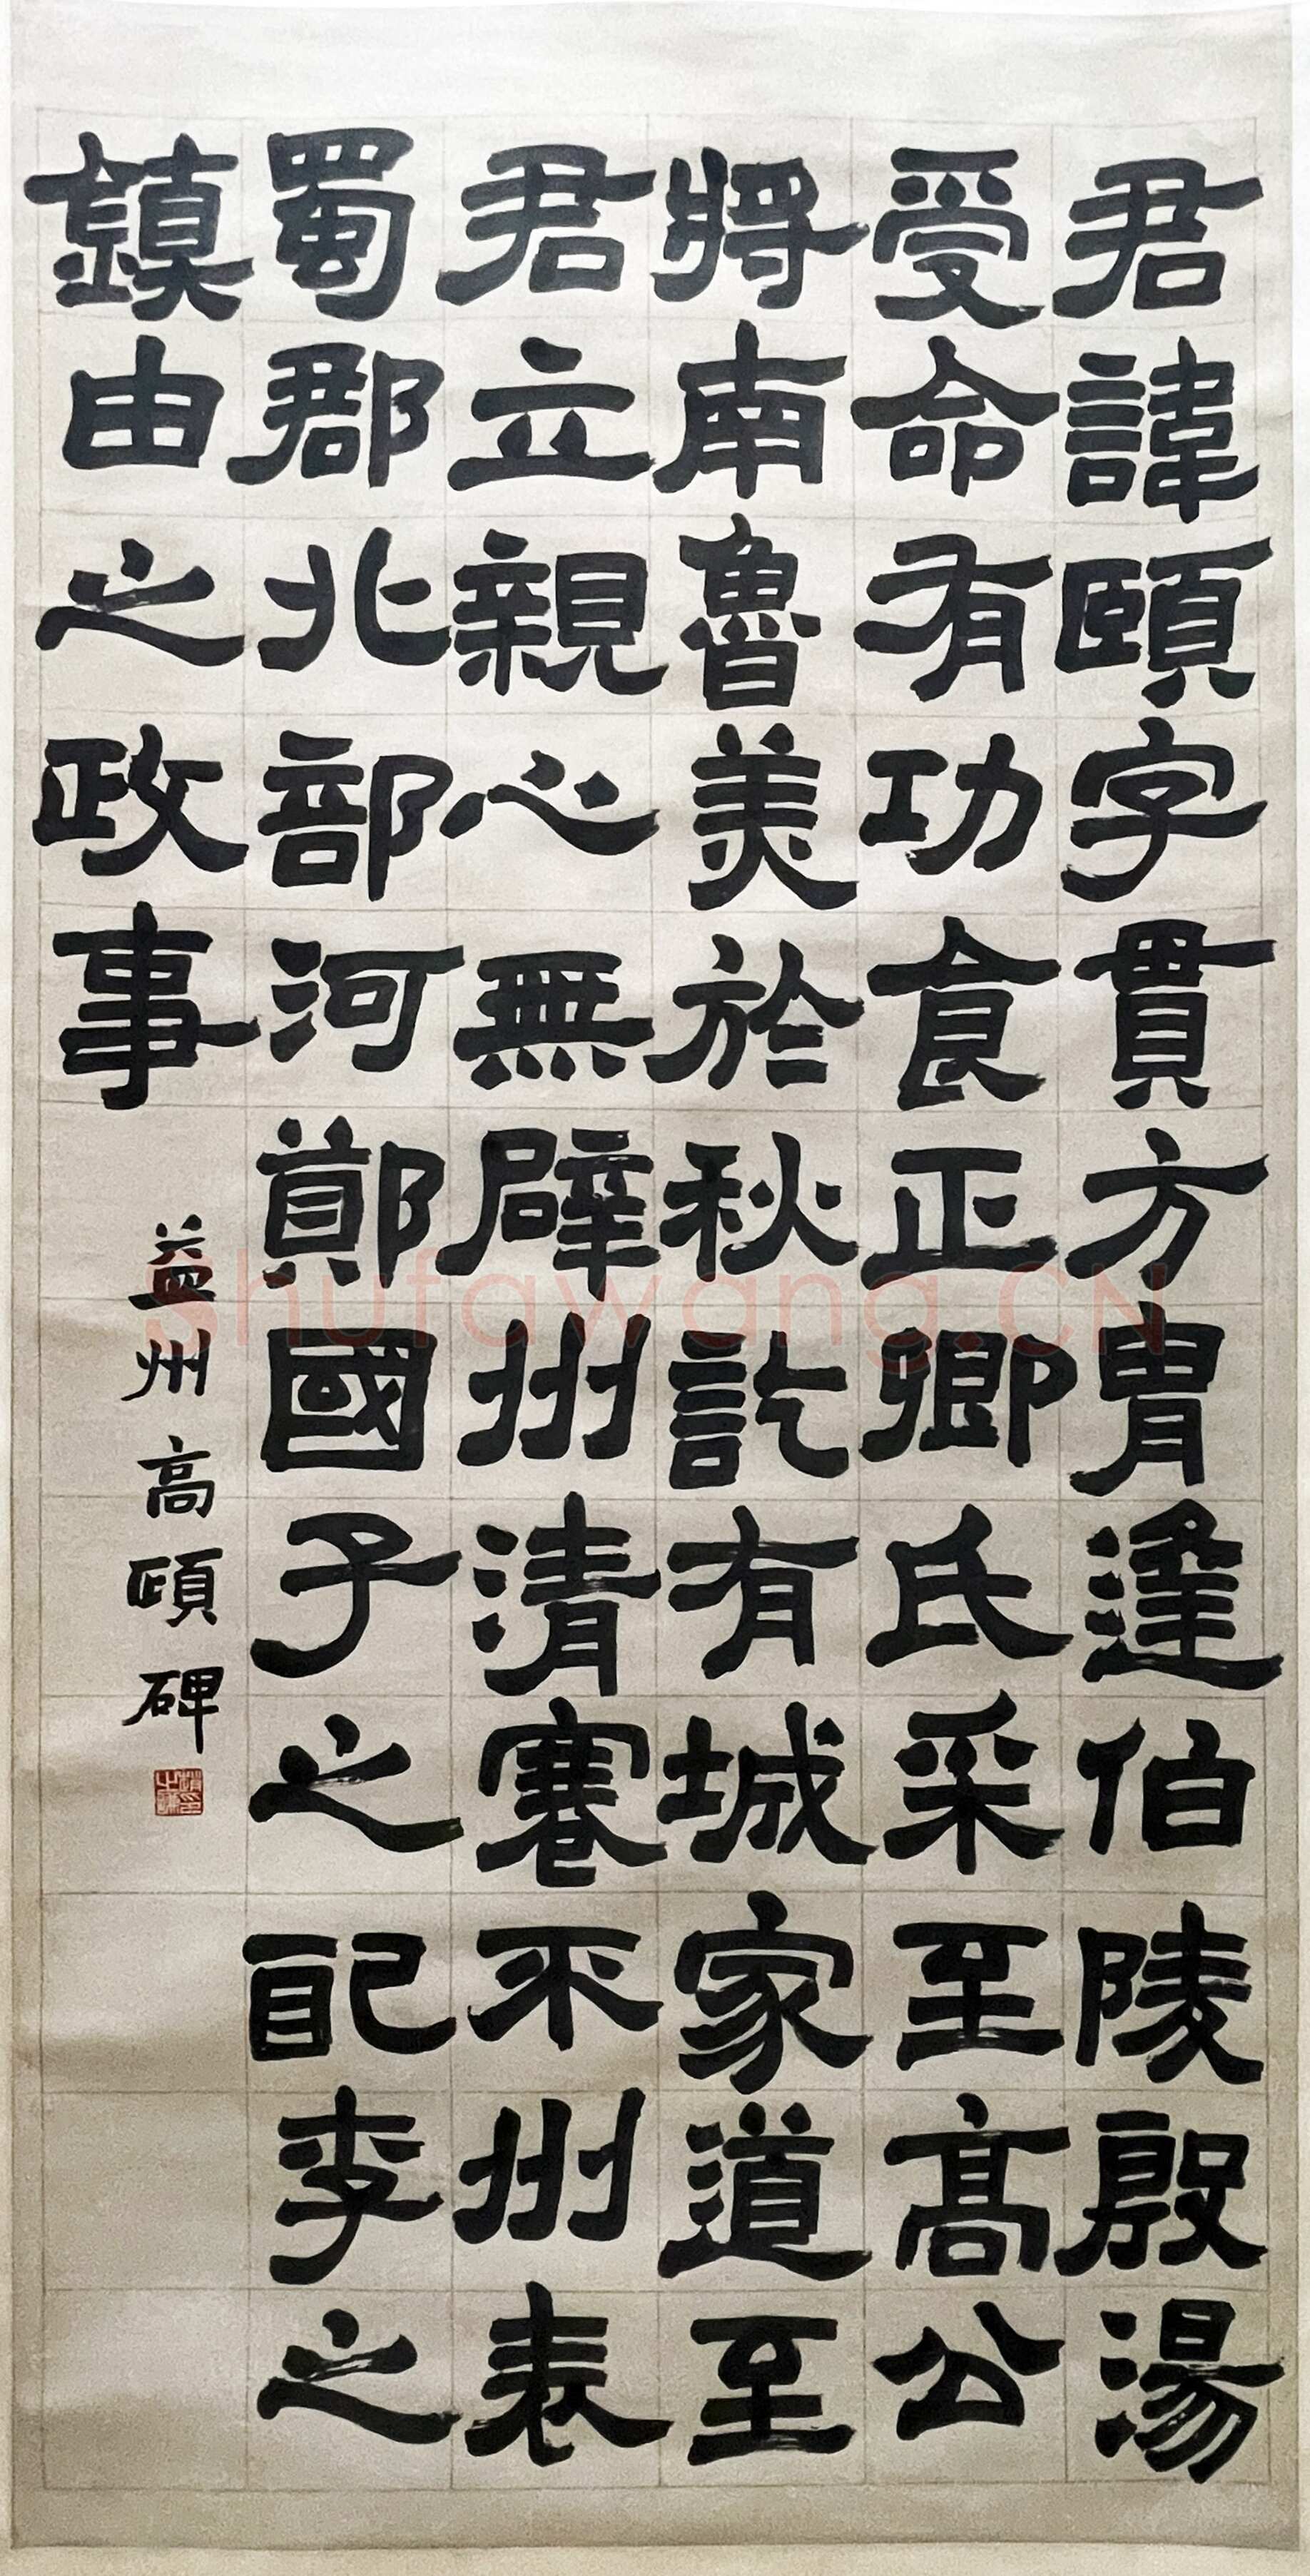 君諱頤字貫方胄逢伯陵殷湯
受命有功食正卿氏采至高公
將南魯美於秋訖有城家道至
君立親心無辟州清蹇不州表
蜀郡北部河鄭國子之配李之
鎮由之政事
益州高頤碑
Shufawang.CN